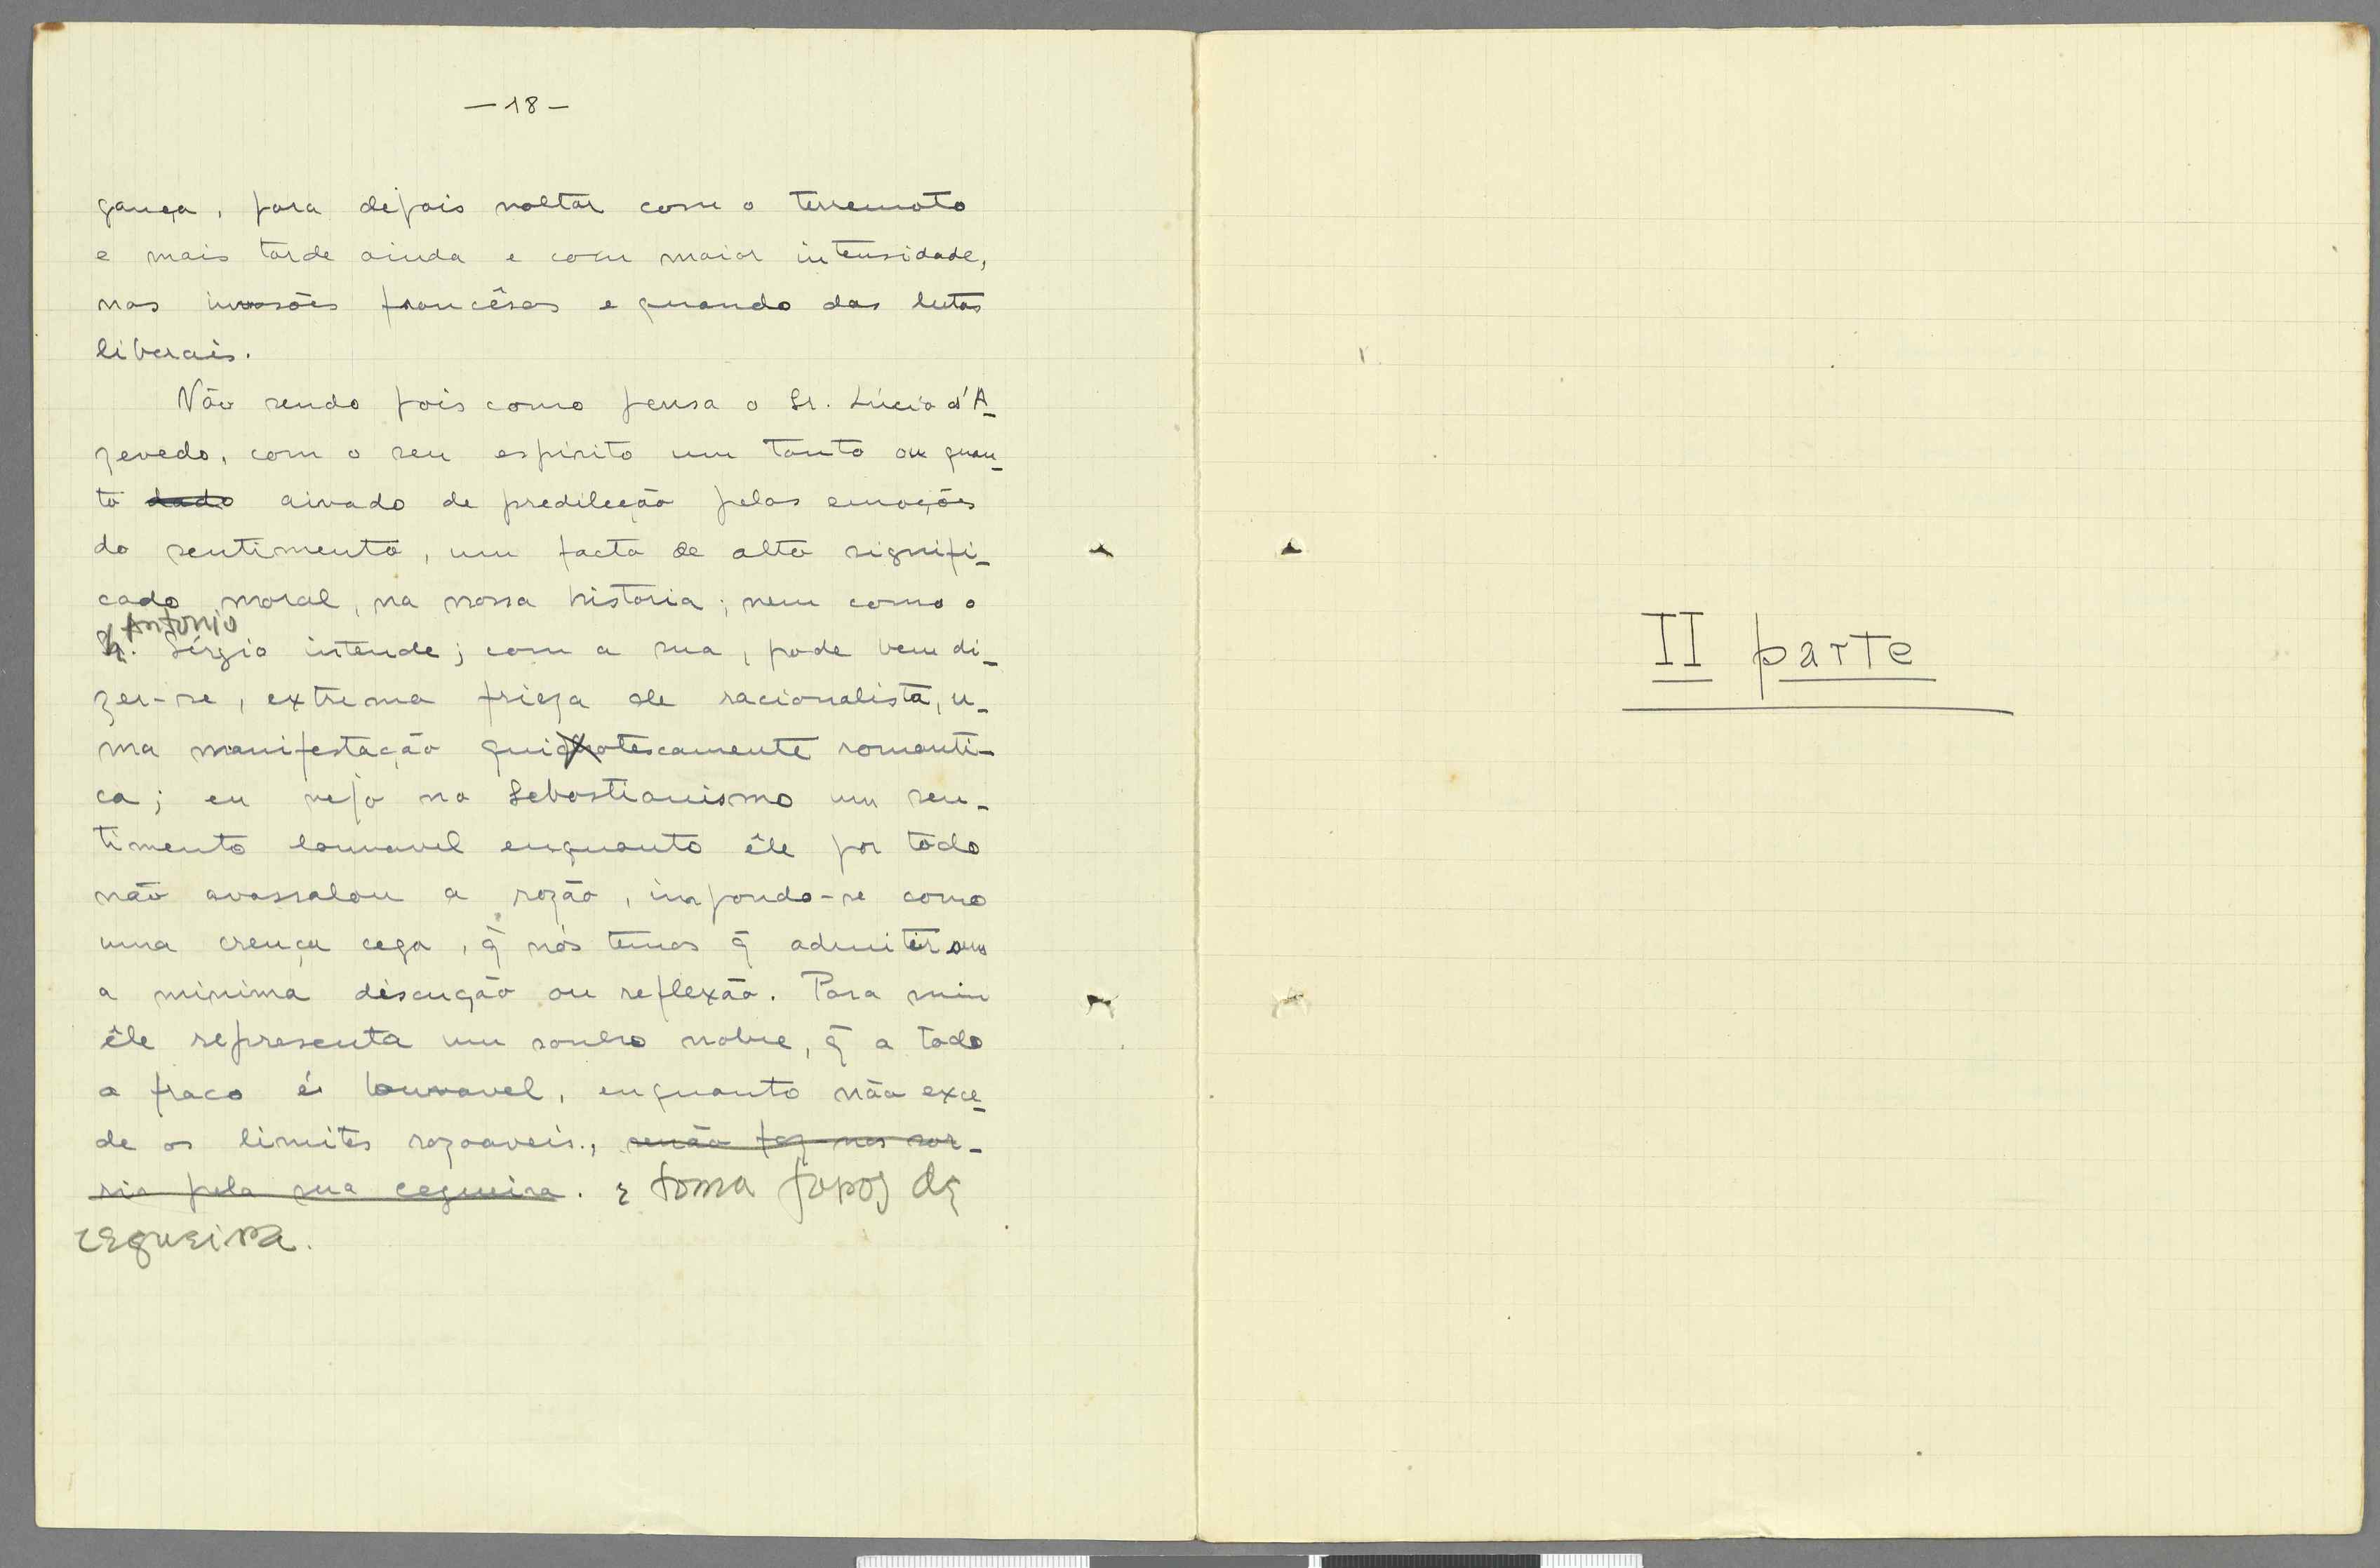 —18—
gança, para depois voltar com o terremoto
e mais tarde ainda e com maior intensidade,
nas invasões francêsas e quando das lutas
liberais.
Não sendo pois como pensa o Sr. Lúcio d'A-
zevedo, com o seu espirito um tanto ou quan-
to dado aivado de predilecção pelas emoções
do sentimento, um facto de alto signifi-
cado moral, na nossa historia; nem como o
Antonio
Sr. Sérgio intende; com a sua, pode bem di-
zer-se, extrema frieza de racionalista, u-
ma manifestação quixotescamente romanti-
ca; eu vejo no Sebastianismo um sen-
timento louvavel enquanto êle por todo
não avassalou a rozão, impondo-se como
uma crença cega, q̃ nós temos q̃ admitir sem
a minima discução ou reflexão. Para mim
êle representa um sonho nobre, q̃ a todo
o fraco é louvavel, enquanto não exce-
de os limites rozoaveis., senão faz-nos sor-
rir pela sua cegueira. e toma fóros de
cegueira.
II parte